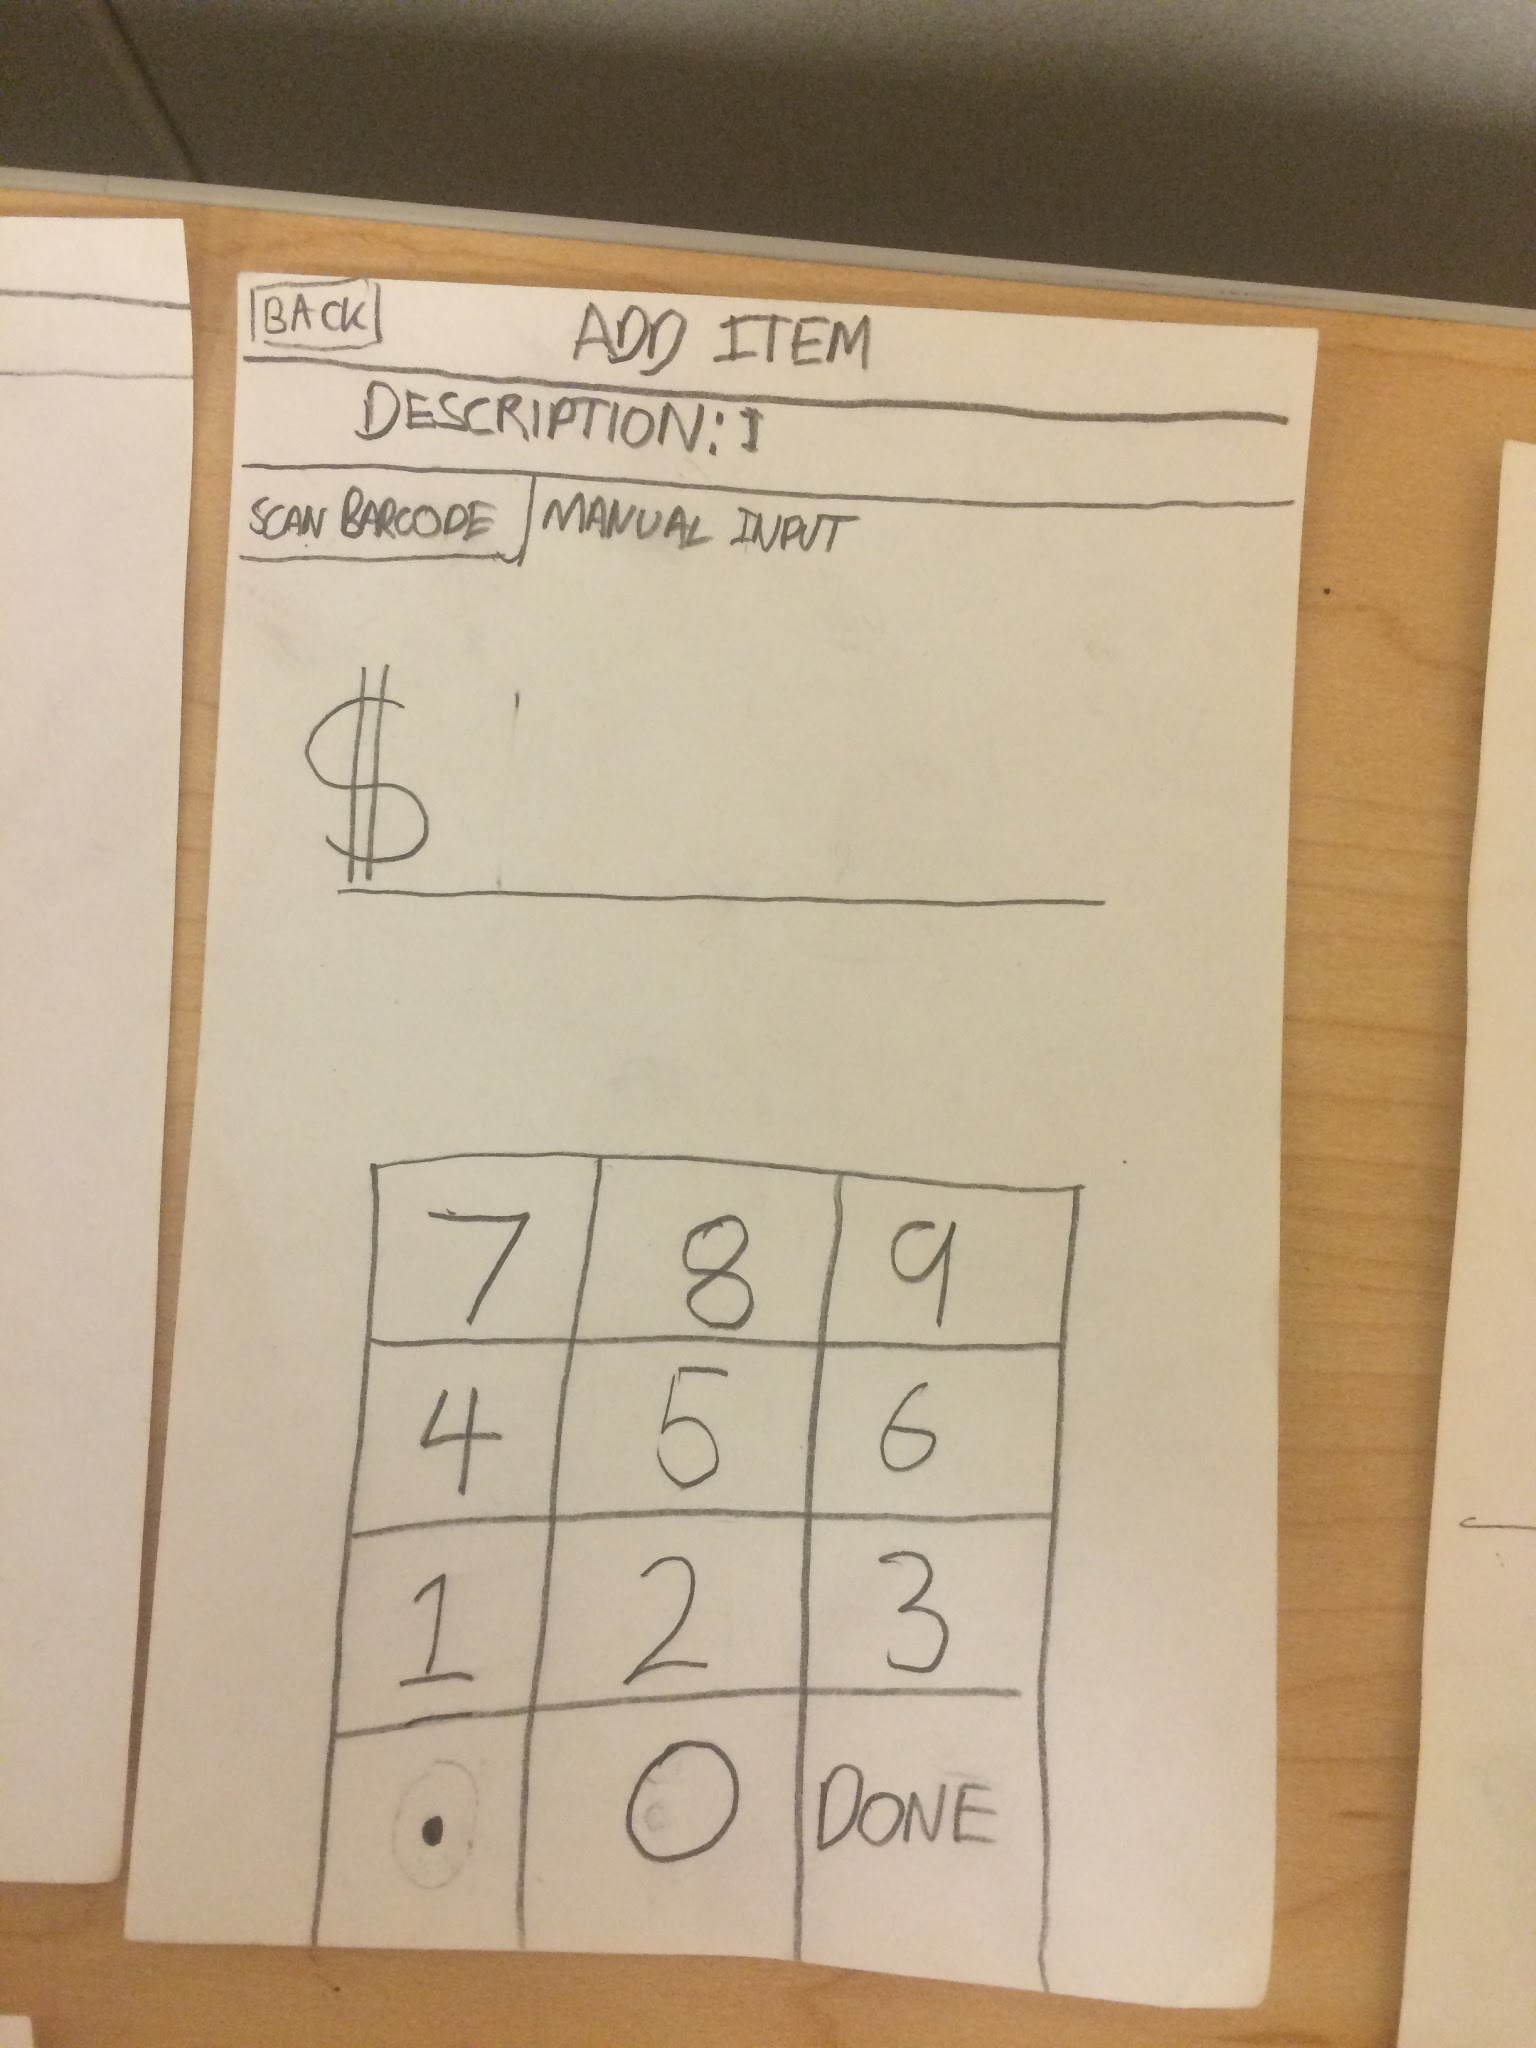 BACK ADD ITEM
DESCRIPTION: I
SCAN BARCODE MANUAL INPUT
$
7 8 9
4 5 6
1 2 3
. 0 DONE